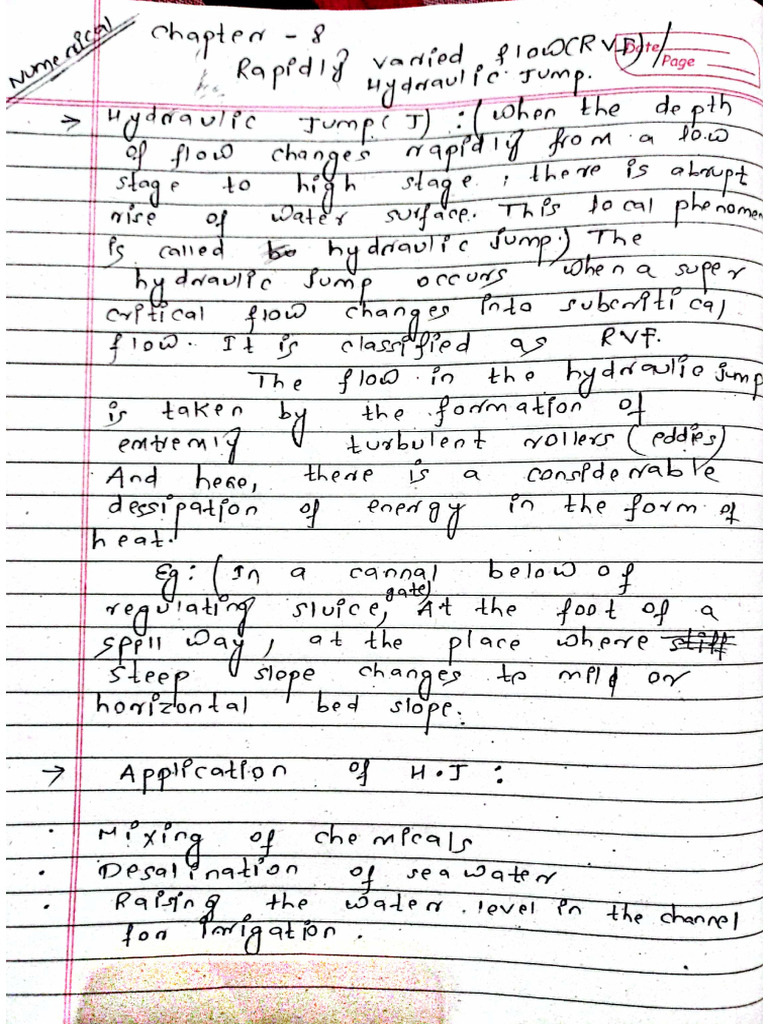 Numerical
Chapter - 8
Rapidly varied flow(RVF)
Hydraulic Jump.
Date
Page
→ Hydraulic Jump(J) : (When the depth
of flow changes rapidly from a low
stage to high stage ; there is abrupt
rise of water surface. This local phenomen
is called hydraulic jump.) The
hydraulic jump occurs when a super
critical flow changes into subcritical
flow. It is classified as RVF.
The flow in the hydraulic jump
is taken by the formation of
extremly turbulent rollers (eddies)
And here, there is a considerable
dessipation of energy in the form of
heat.
Eg: (In a cannal below of
regulating sluice gate), At the foot of a
spill way, at the place where stiff
steep slope changes to mild or
horizontal bed slope.
→ Application of H.J :
• Mixing of chemicals
• Desalination of sea water
• Raising the water level in the channel
for irrigation.